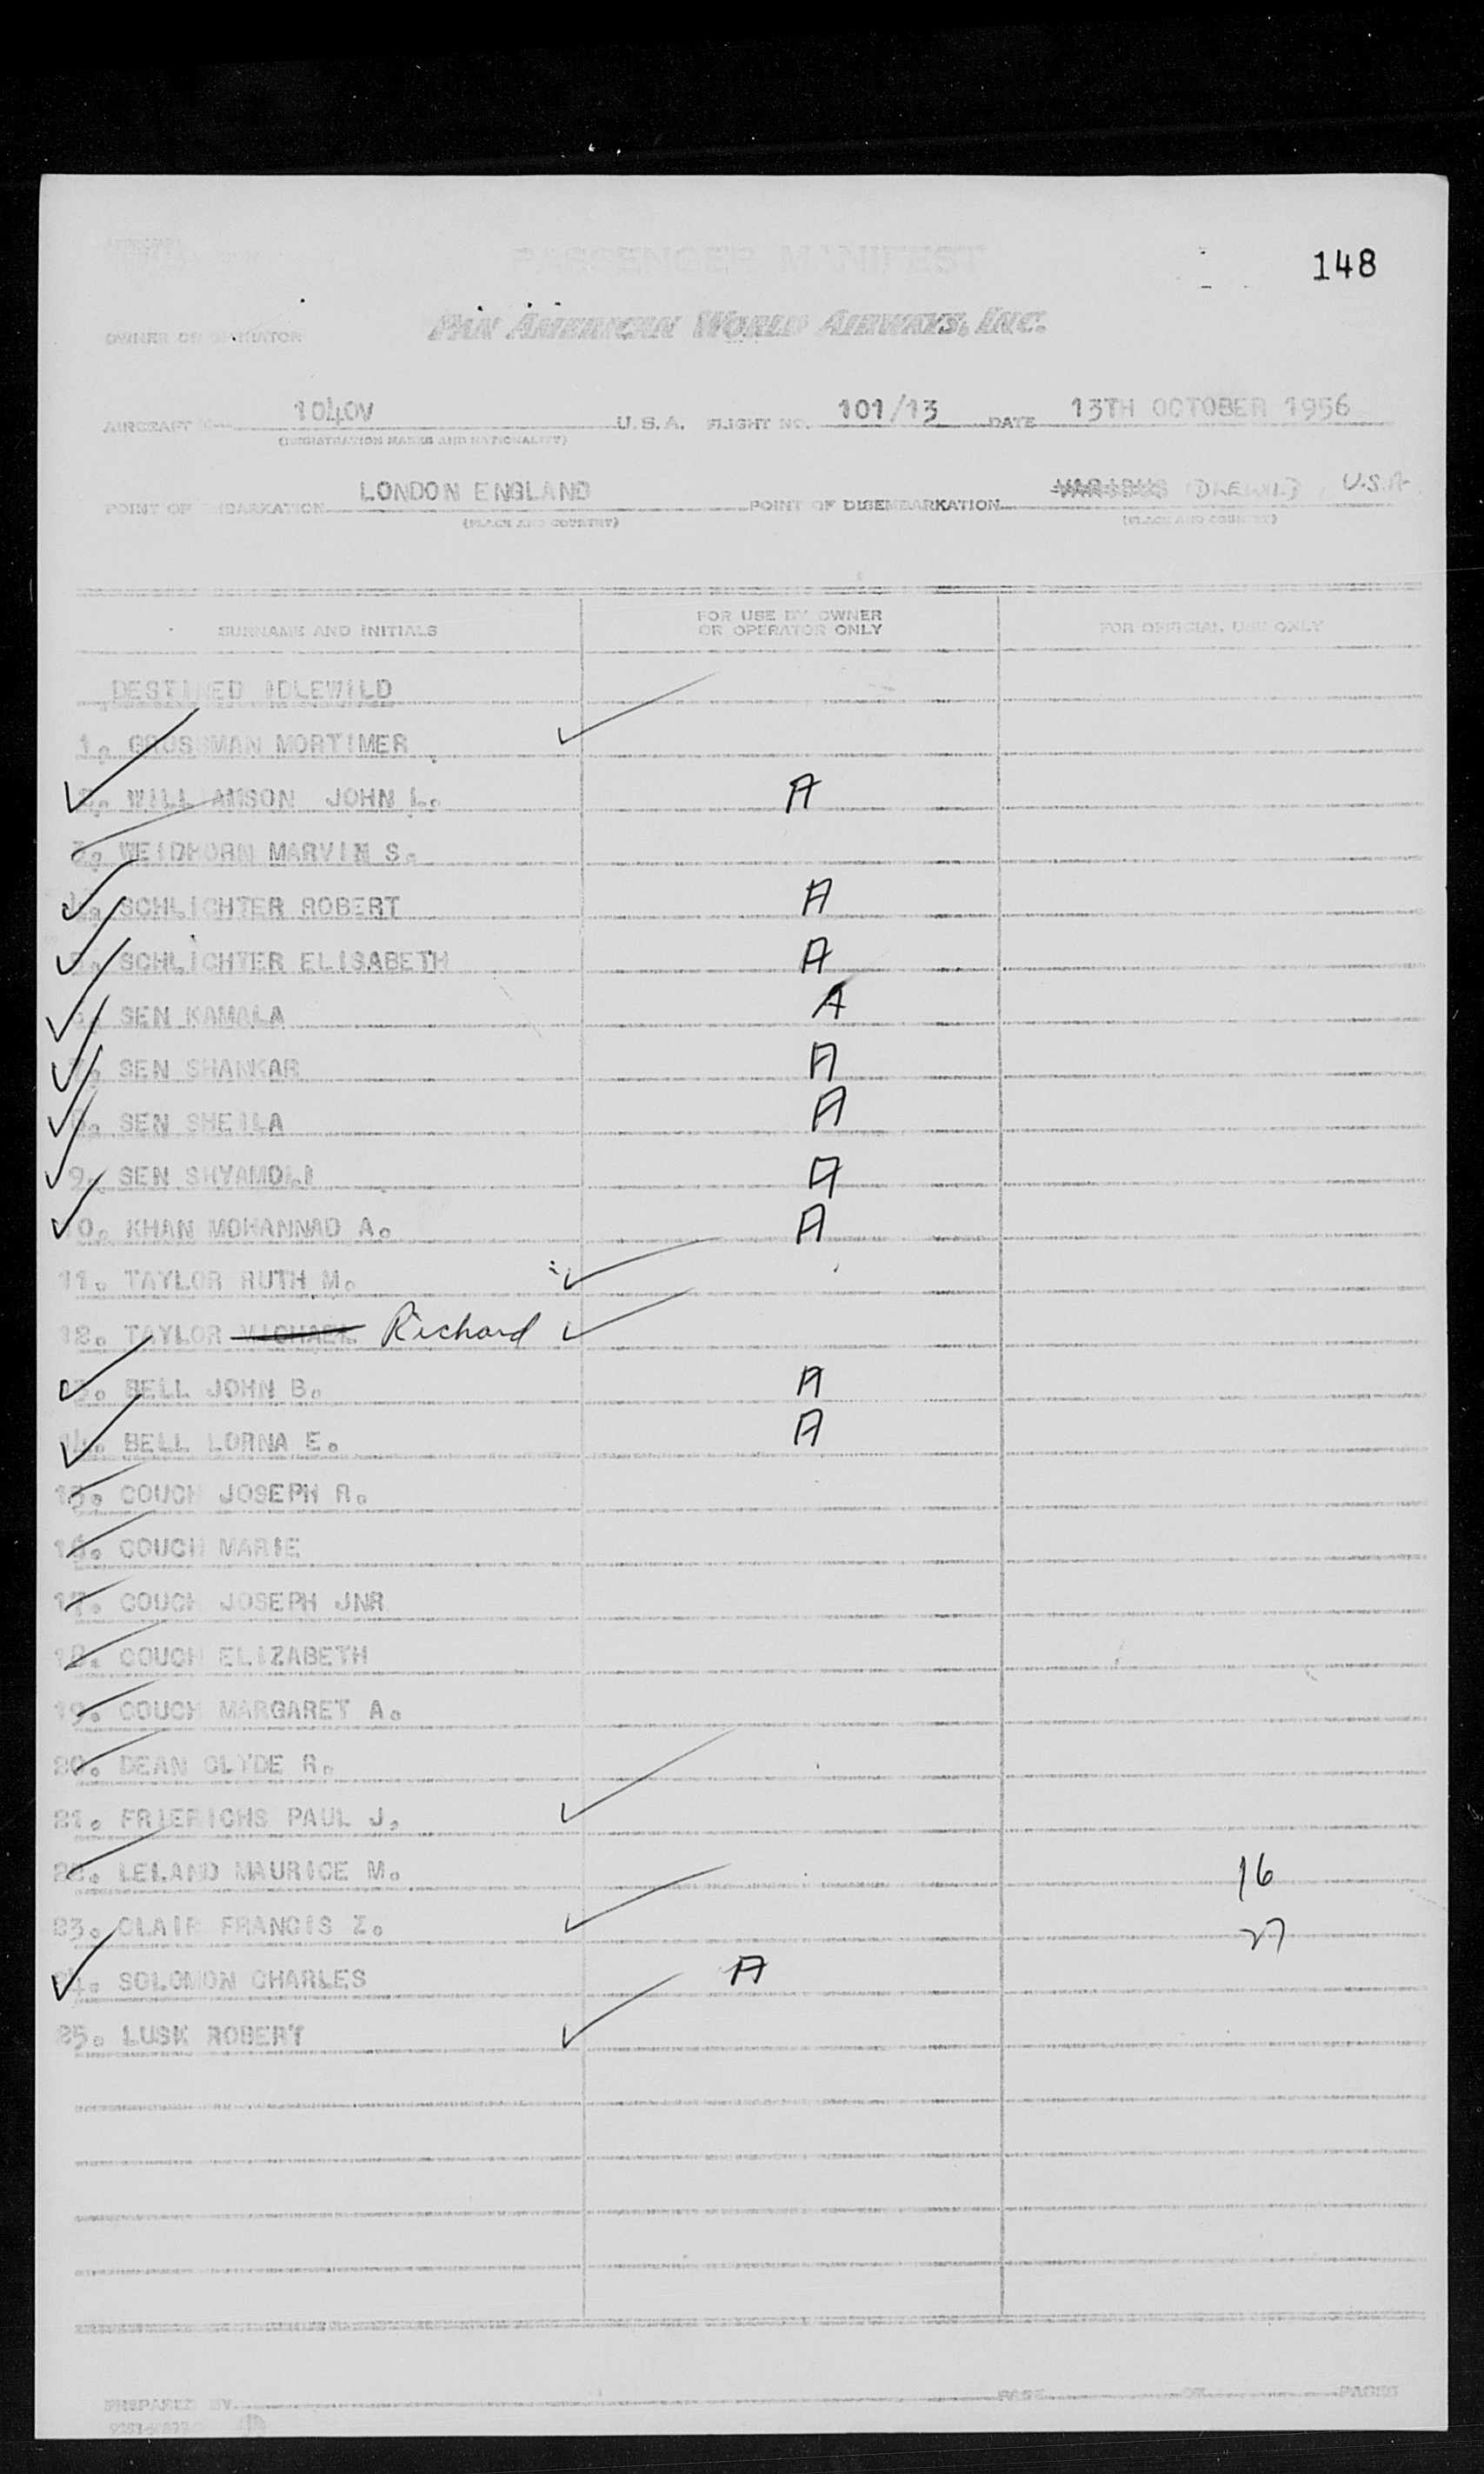 148
PASSENGER MANIFEST
OWNER OR OPERATOR PAN AMERICAN WORLD AIRWAYS, INC.
AIRCRAFT 1040V U.S.A. FLIGHT NO. 101/13 DATE 13TH OCTOBER 1956
(REGISTRATION MARKS AND NATIONALITY)
POINT OF EMBARKATION LONDON ENGLAND POINT OF DISEMBARKATION VARIOUS IDLEWILD, U.S.A.
(PLACE AND COUNTRY) (PLACE AND COUNTRY)
SURNAME AND INITIALS FOR USE BY OWNER OR OPERATOR ONLY FOR OFFICIAL USE ONLY
DESTINED IDLEWILD
1. GROSSMAN MORTIMER
2. WILLIAMSON JOHN L. A
3. WEIDHORN MARVIN S.
4. SCHLICHTER ROBERT A
5. SCHLICHTER ELISABETH A
6. SEN KAMALA A
7. SEN SHANKAR A
8. SEN SHEILA A
9. SEN SHYAMOLI A
10. KHAN MOHANNAD A. A
11. TAYLOR RUTH M.
12. TAYLOR MICHAEL Richard
13. BELL JOHN B. A
14. BELL LORNA E. A
15. COUCH JOSEPH R.
16. COUCH MARIE
17. COUCH JOSEPH JNR
18. COUCH ELIZABETH
19. COUCH MARGARET A.
20. DEAN CLYDE R.
21. FRIERICHS PAUL J.
22. LELAND MAURICE M. 16
23. CLAIR FRANCIS Z. 27
24. SOLOMON CHARLES A
25. LUSK ROBERT
PREPARED BY PAGE OF PAGES